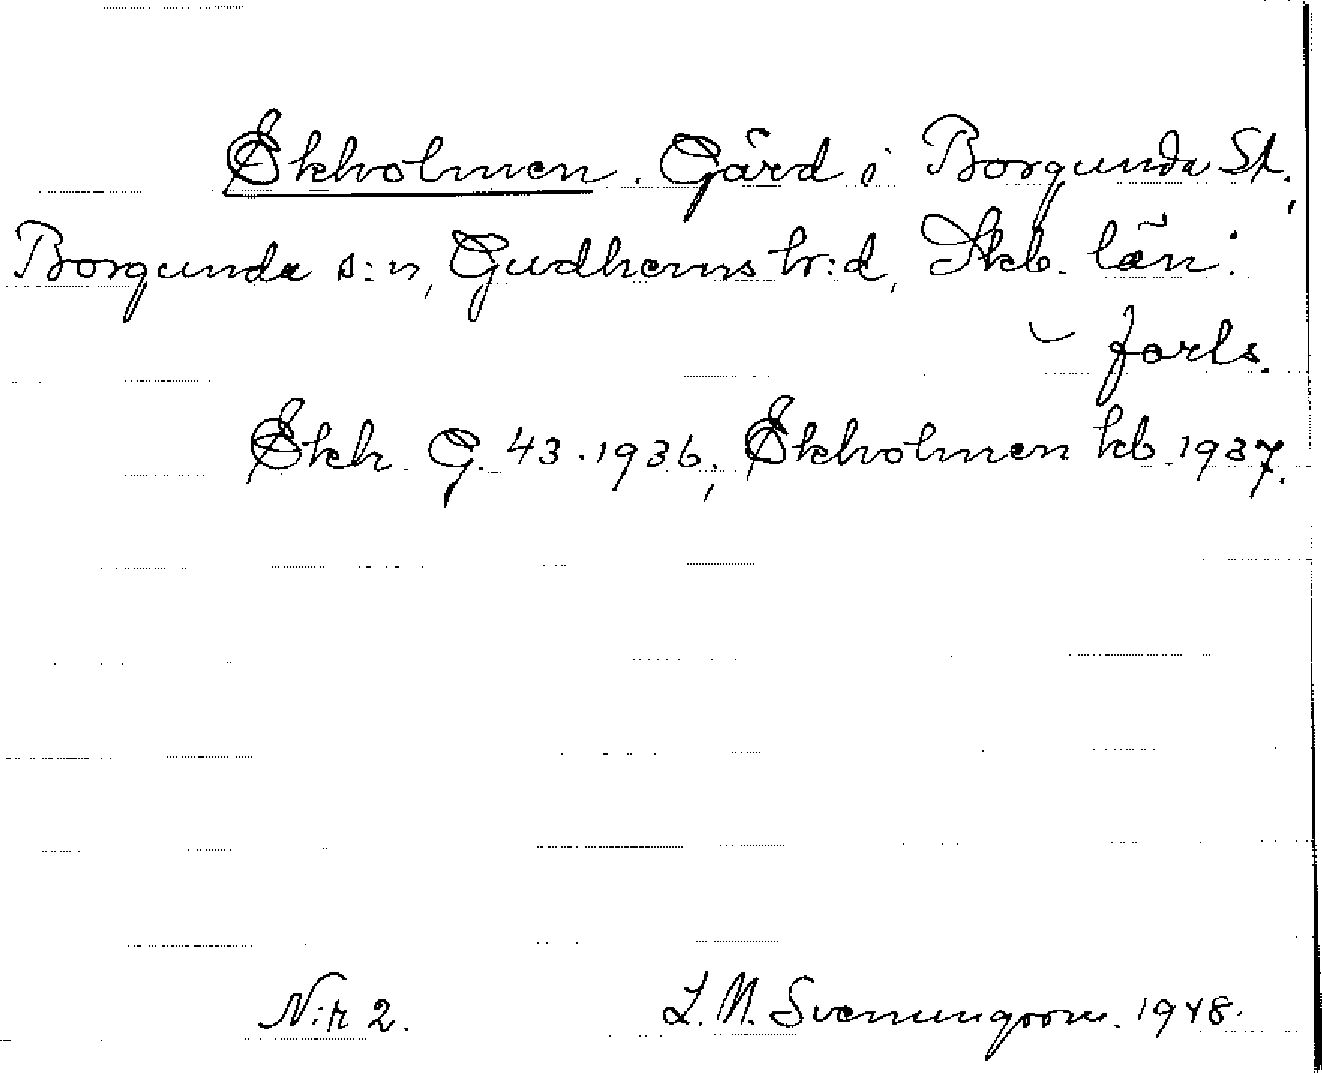 Ekholmen. Gård i Borgunda St.,
Borgunda s:n, Gudhems hr:d, Skb. län.
forts.
Ekh. G. 43. 1936, Ekholmen kb. 1937.
N:r 2. L. N. Svenungsson. 1948.